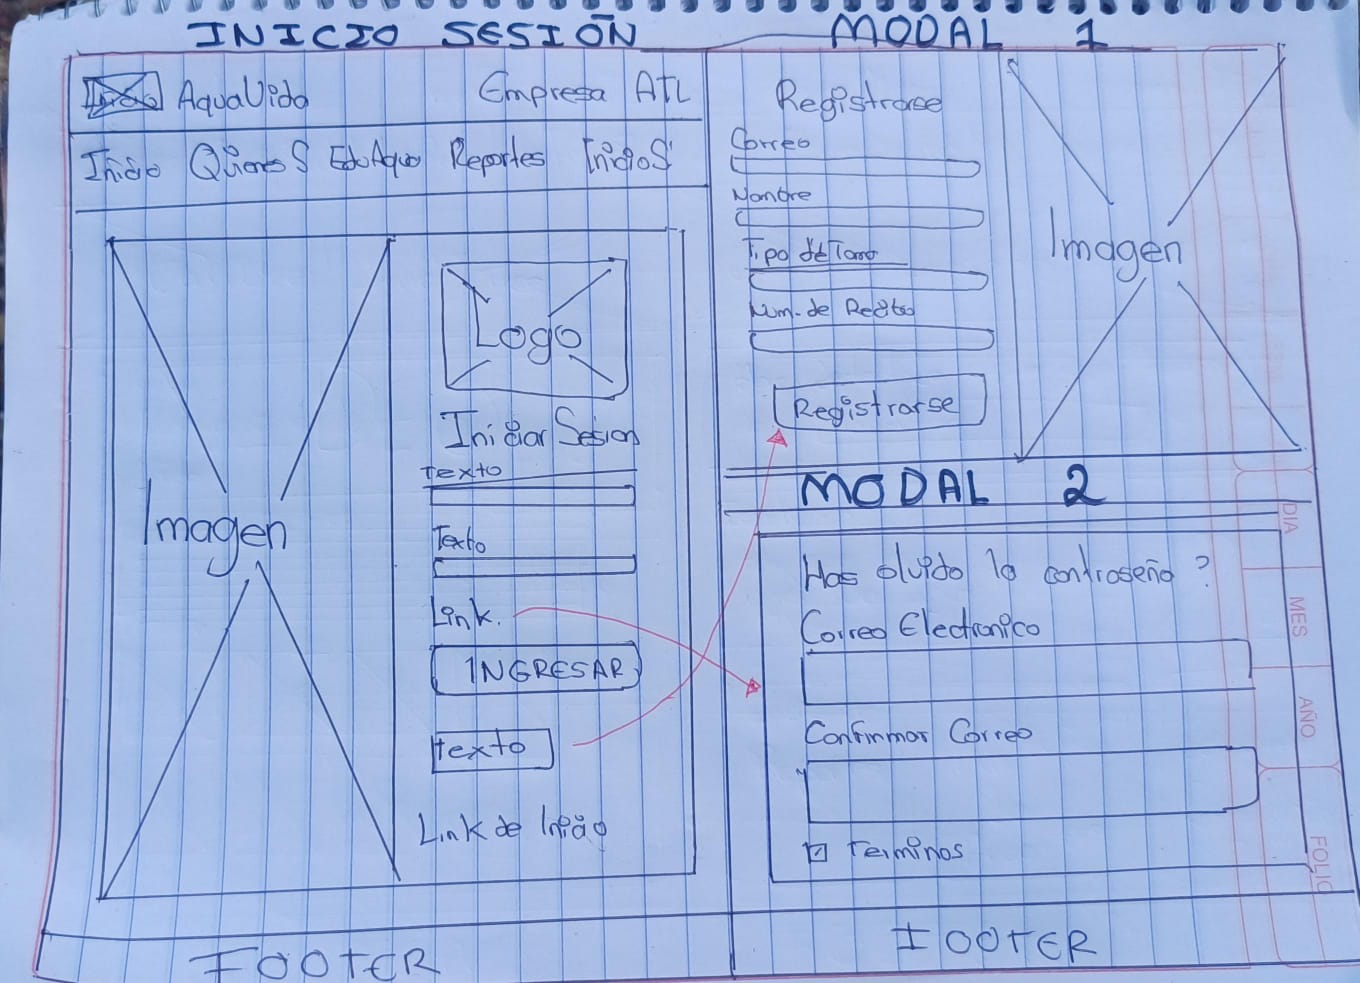 INICIO SESIÓN
AquaVida Empresa ATL
Inicio Quienes S EduAqua Reportes Inicio S
Imagen
Logo
Iniciar Sesion
Texto
Texto
Link.
INGRESAR
texto
Link de
FOOTER
MODAL 1
Registrarse
Correo
Nombre
Tipo de Toma
Num. de Recibo
Registrarse
Imagen
MODAL 2
Has olvido la contraseña ?
Correo Electronico
Confirmar Correo
Terminos
FOOTER
DIA
MES
AÑO
FOLIO